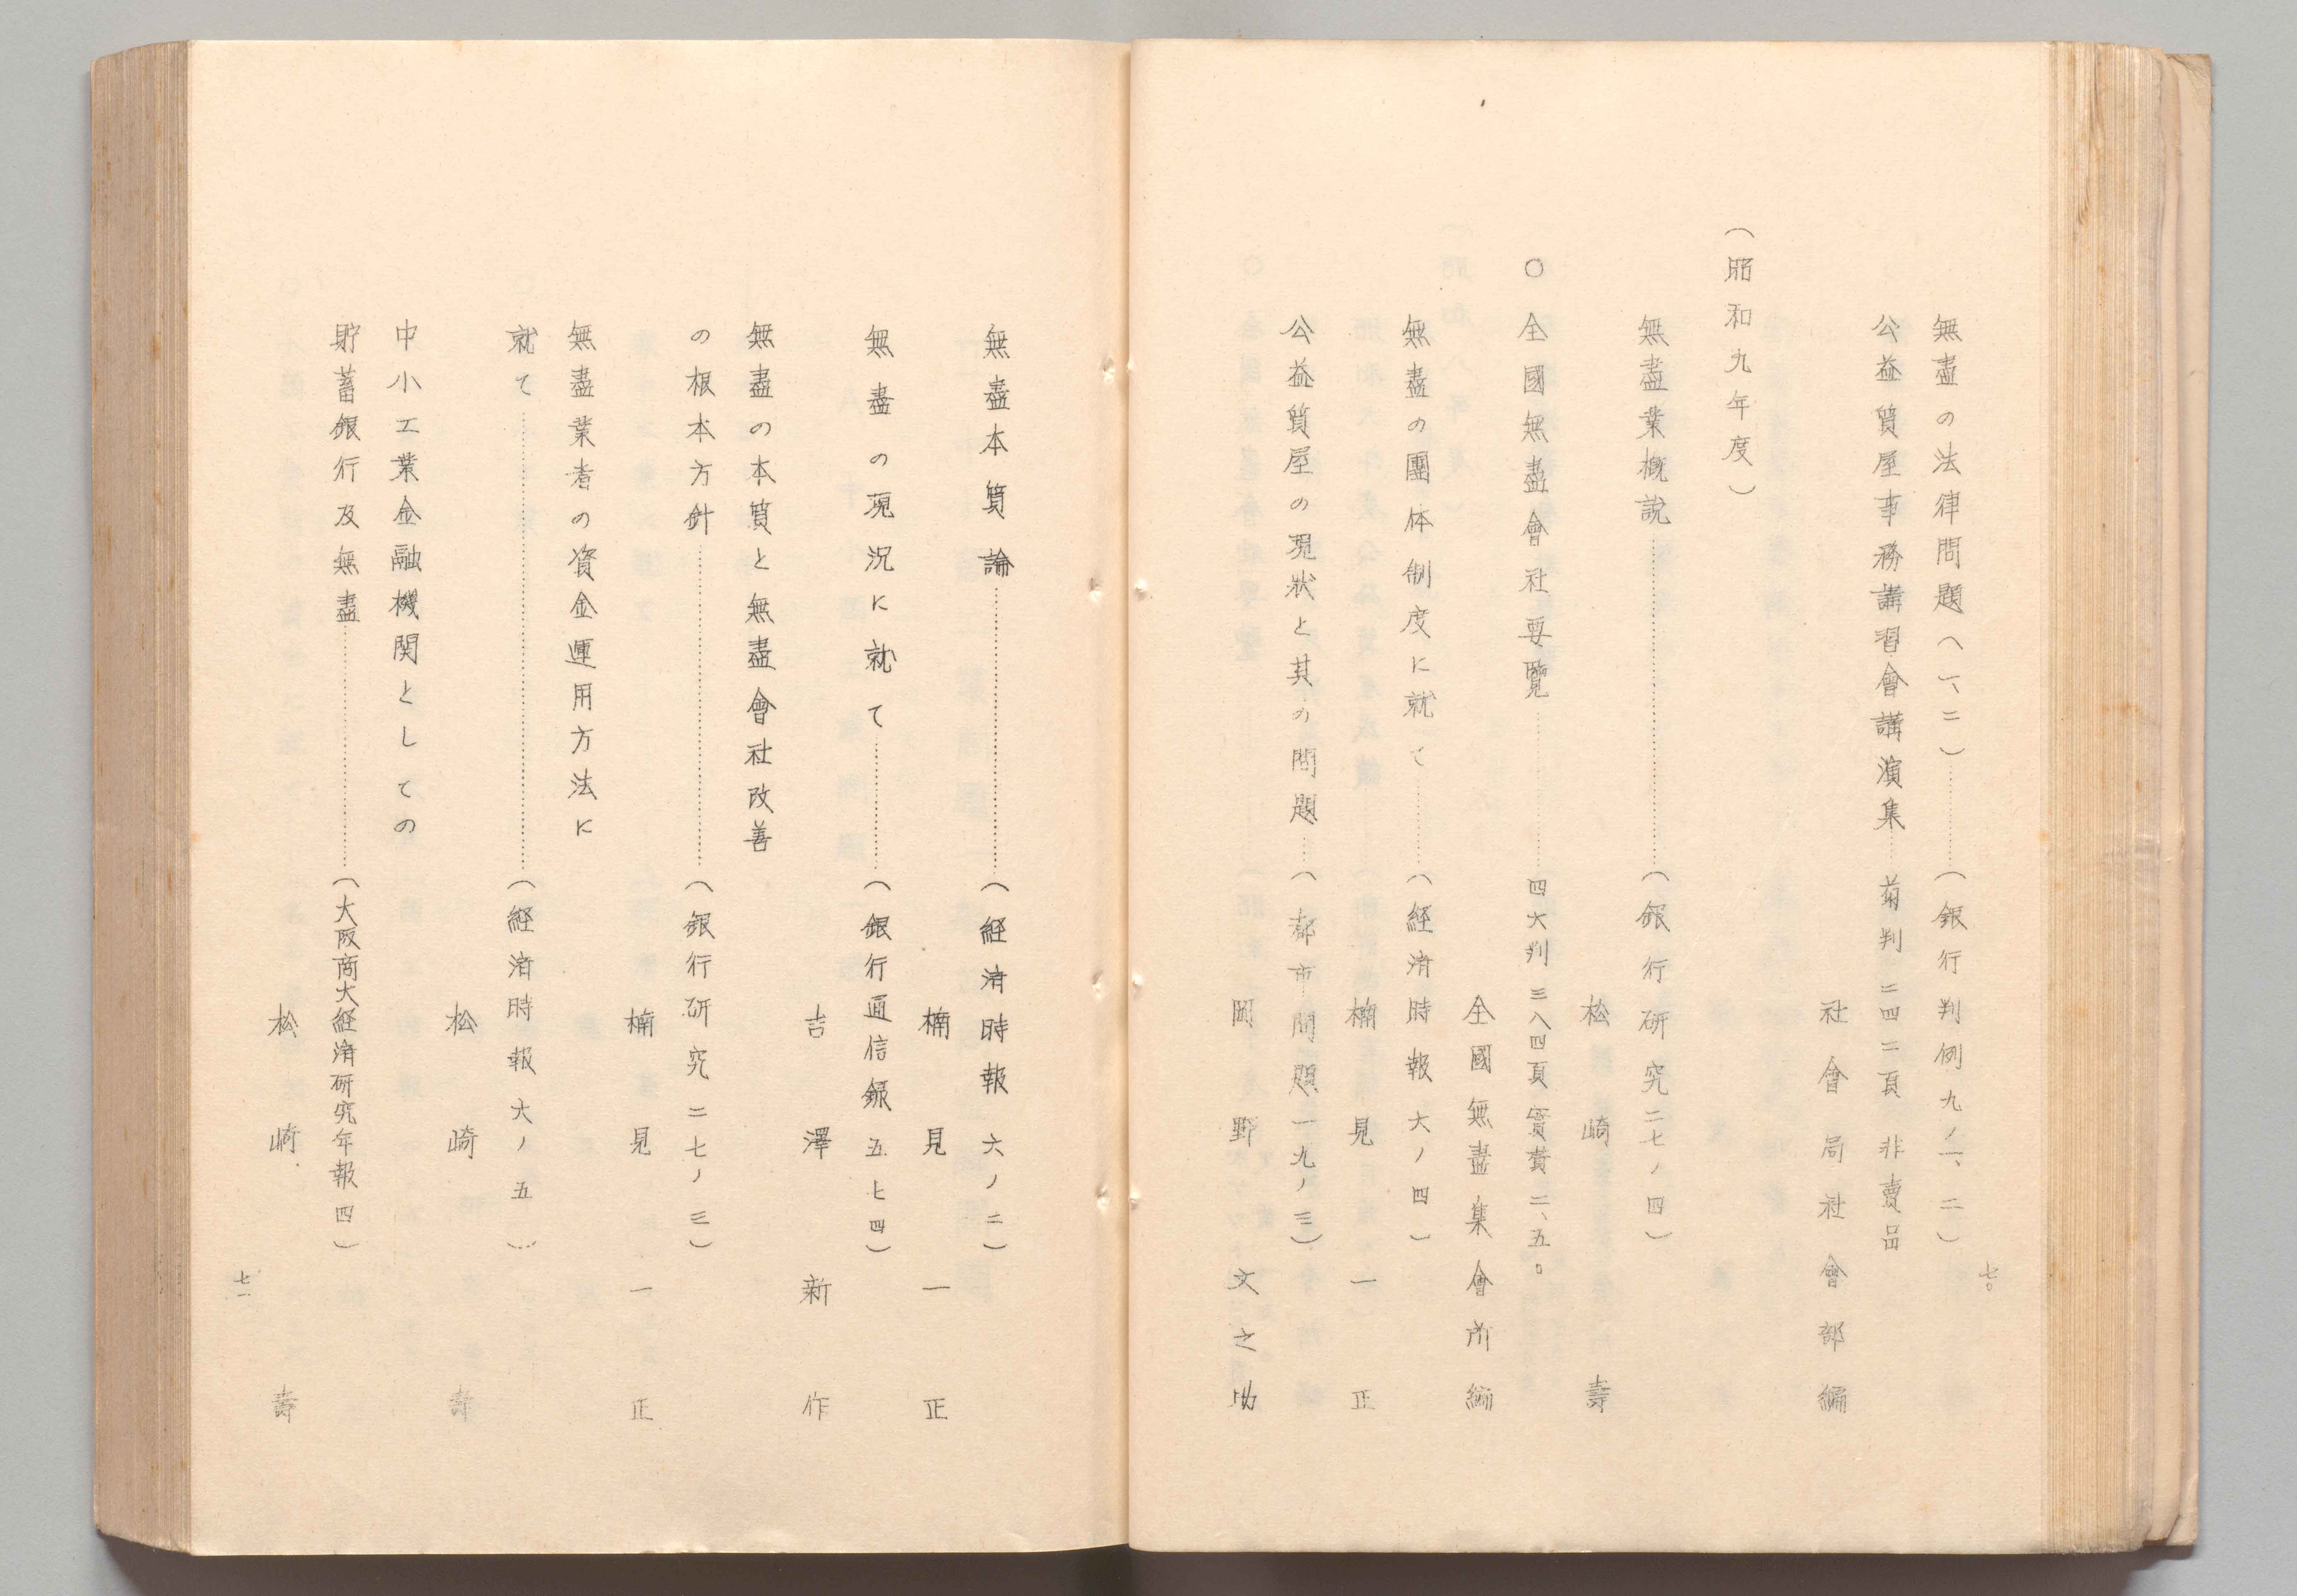 七〇
無盡の法律問題(一、二)……(銀行判例九ノ一、二)
公益質屋事務講習會講演集……菊判二四二頁 非賣品
社會局社會部編
(昭和九年度)
無盡業概說……(銀行研究二七ノ四)
松崎壽
○全國無盡會社要覽……四六判三八四頁實費二、五〇
全國無盡集會所編
無盡の團体制度に就て……(経済時報六ノ四)
楠見一正
公益質屋の現狀と其の問題……(都市問題一九ノ三)
岡野文之助
無盡本質論……(経済時報六ノ二)
楠見一正
無盡の現況に就て……(銀行通信録五七四)
吉澤新作
無盡の本質と無盡會社改善
の根本方針……(銀行研究二七ノ三)
楠見一正
無盡業者の資金運用方法に
就て……(経済時報六ノ五)
松崎壽
中小工業金融機関としての
貯蓄銀行及無盡……(大阪商大経済研究年報四)
松崎壽
七一